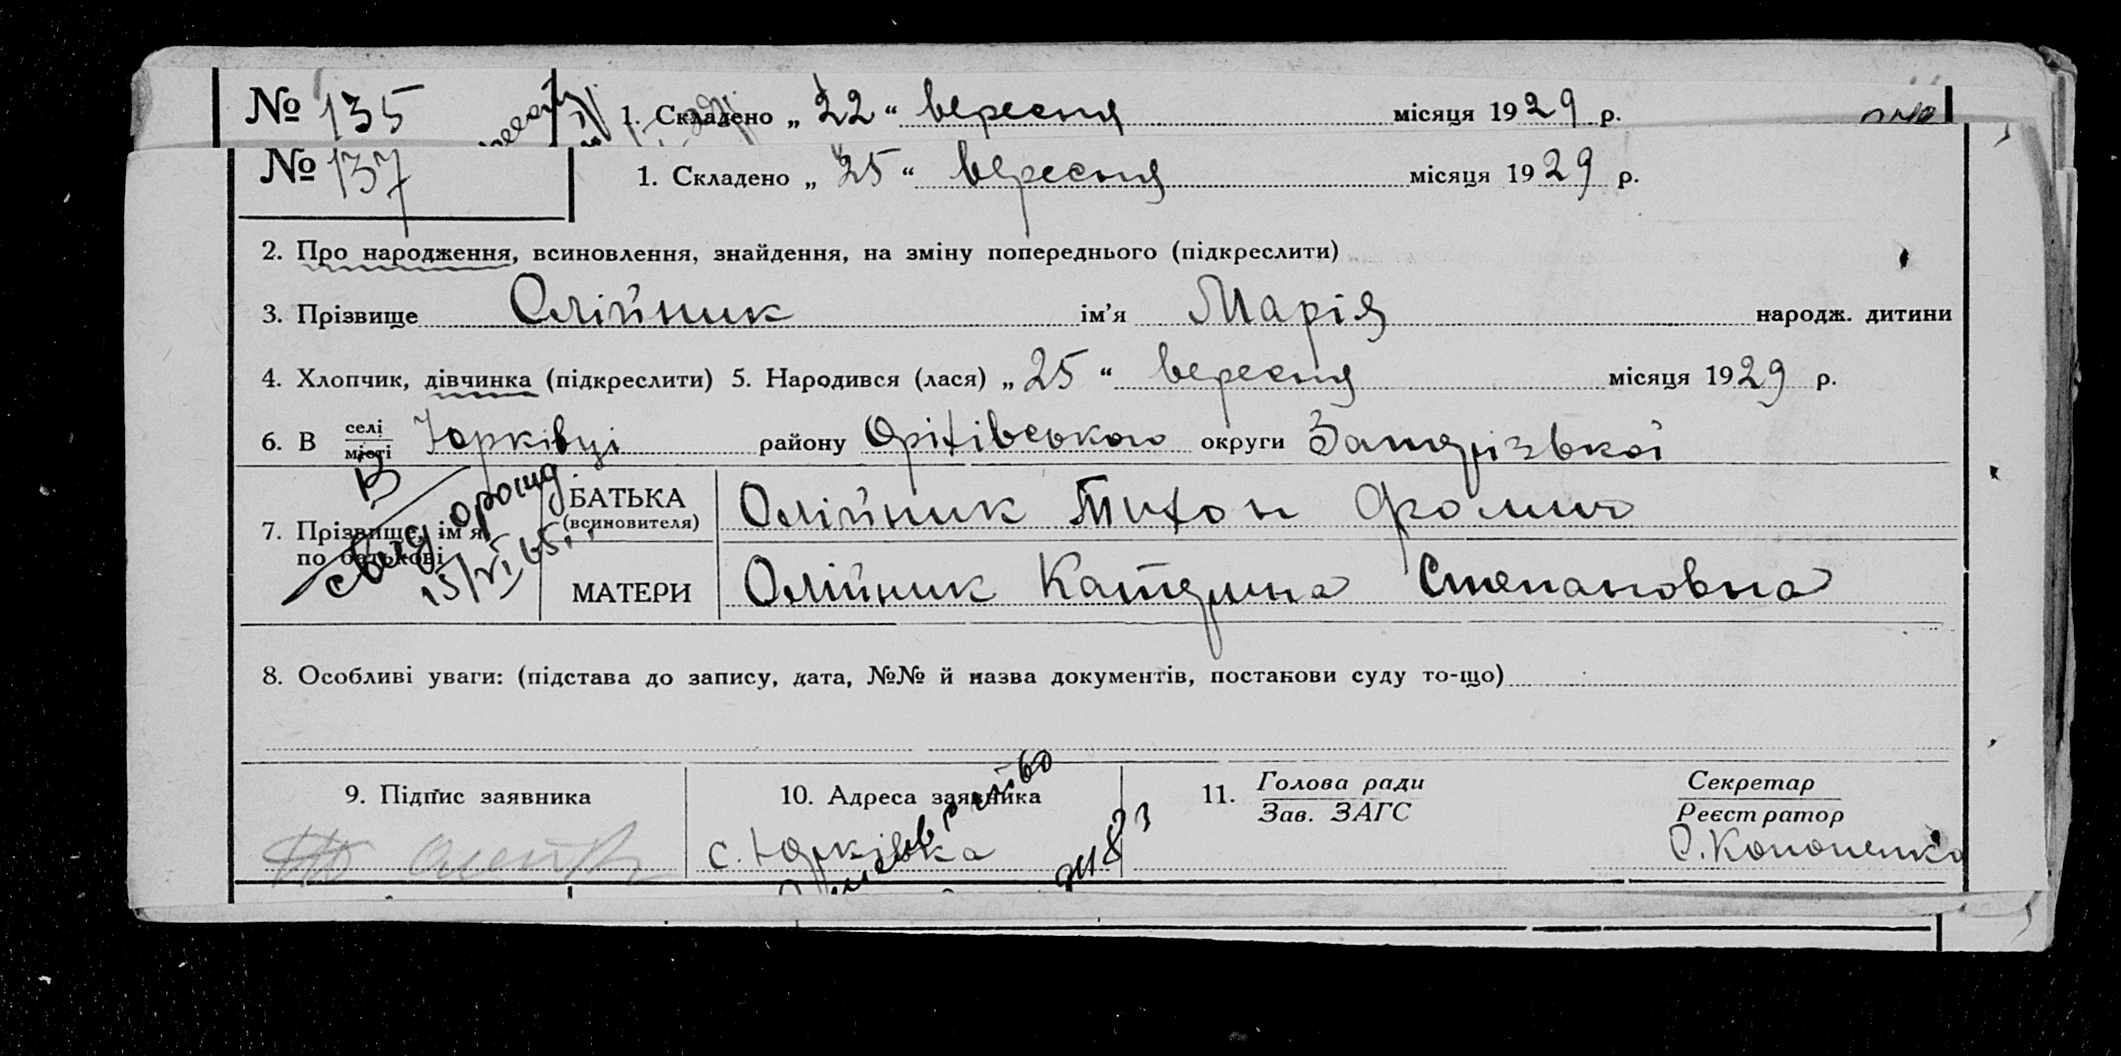 № 135 1. Складено „ 22 “ вересня місяця 1929 р.
№ 137 1. Складено „ 25 “ вересня місяця 1929 р.
2. Про народження, всиновлення, знайдення, на зміну попереднього (підкреслити)
3. Прізвище Олійник ім'я Марія народж. дитини
4. Хлопчик, дівчинка (підкреслити) 5. Народився (лася) „ 25 “ вересня місяця 1929 р.
6. В селі Юрківці району Оріхівського округи Запорізької
місті
В
7. Прізвище, ім'я
по батькові
15/VI 65.
БАТЬКА
(всиновителя)
Олійник Тихон Фомич
МАТЕРИ Олійник Катерина Степановна
8. Особливі уваги: (підстава до запису, дата, №№ й назва документів, постанови суду то-що)
9. Підпис заявника 10. Адреса заявника 11. Голова ради Секретар
Зав. ЗАГС Реєстратор
с. Юрківка О. Кононенко